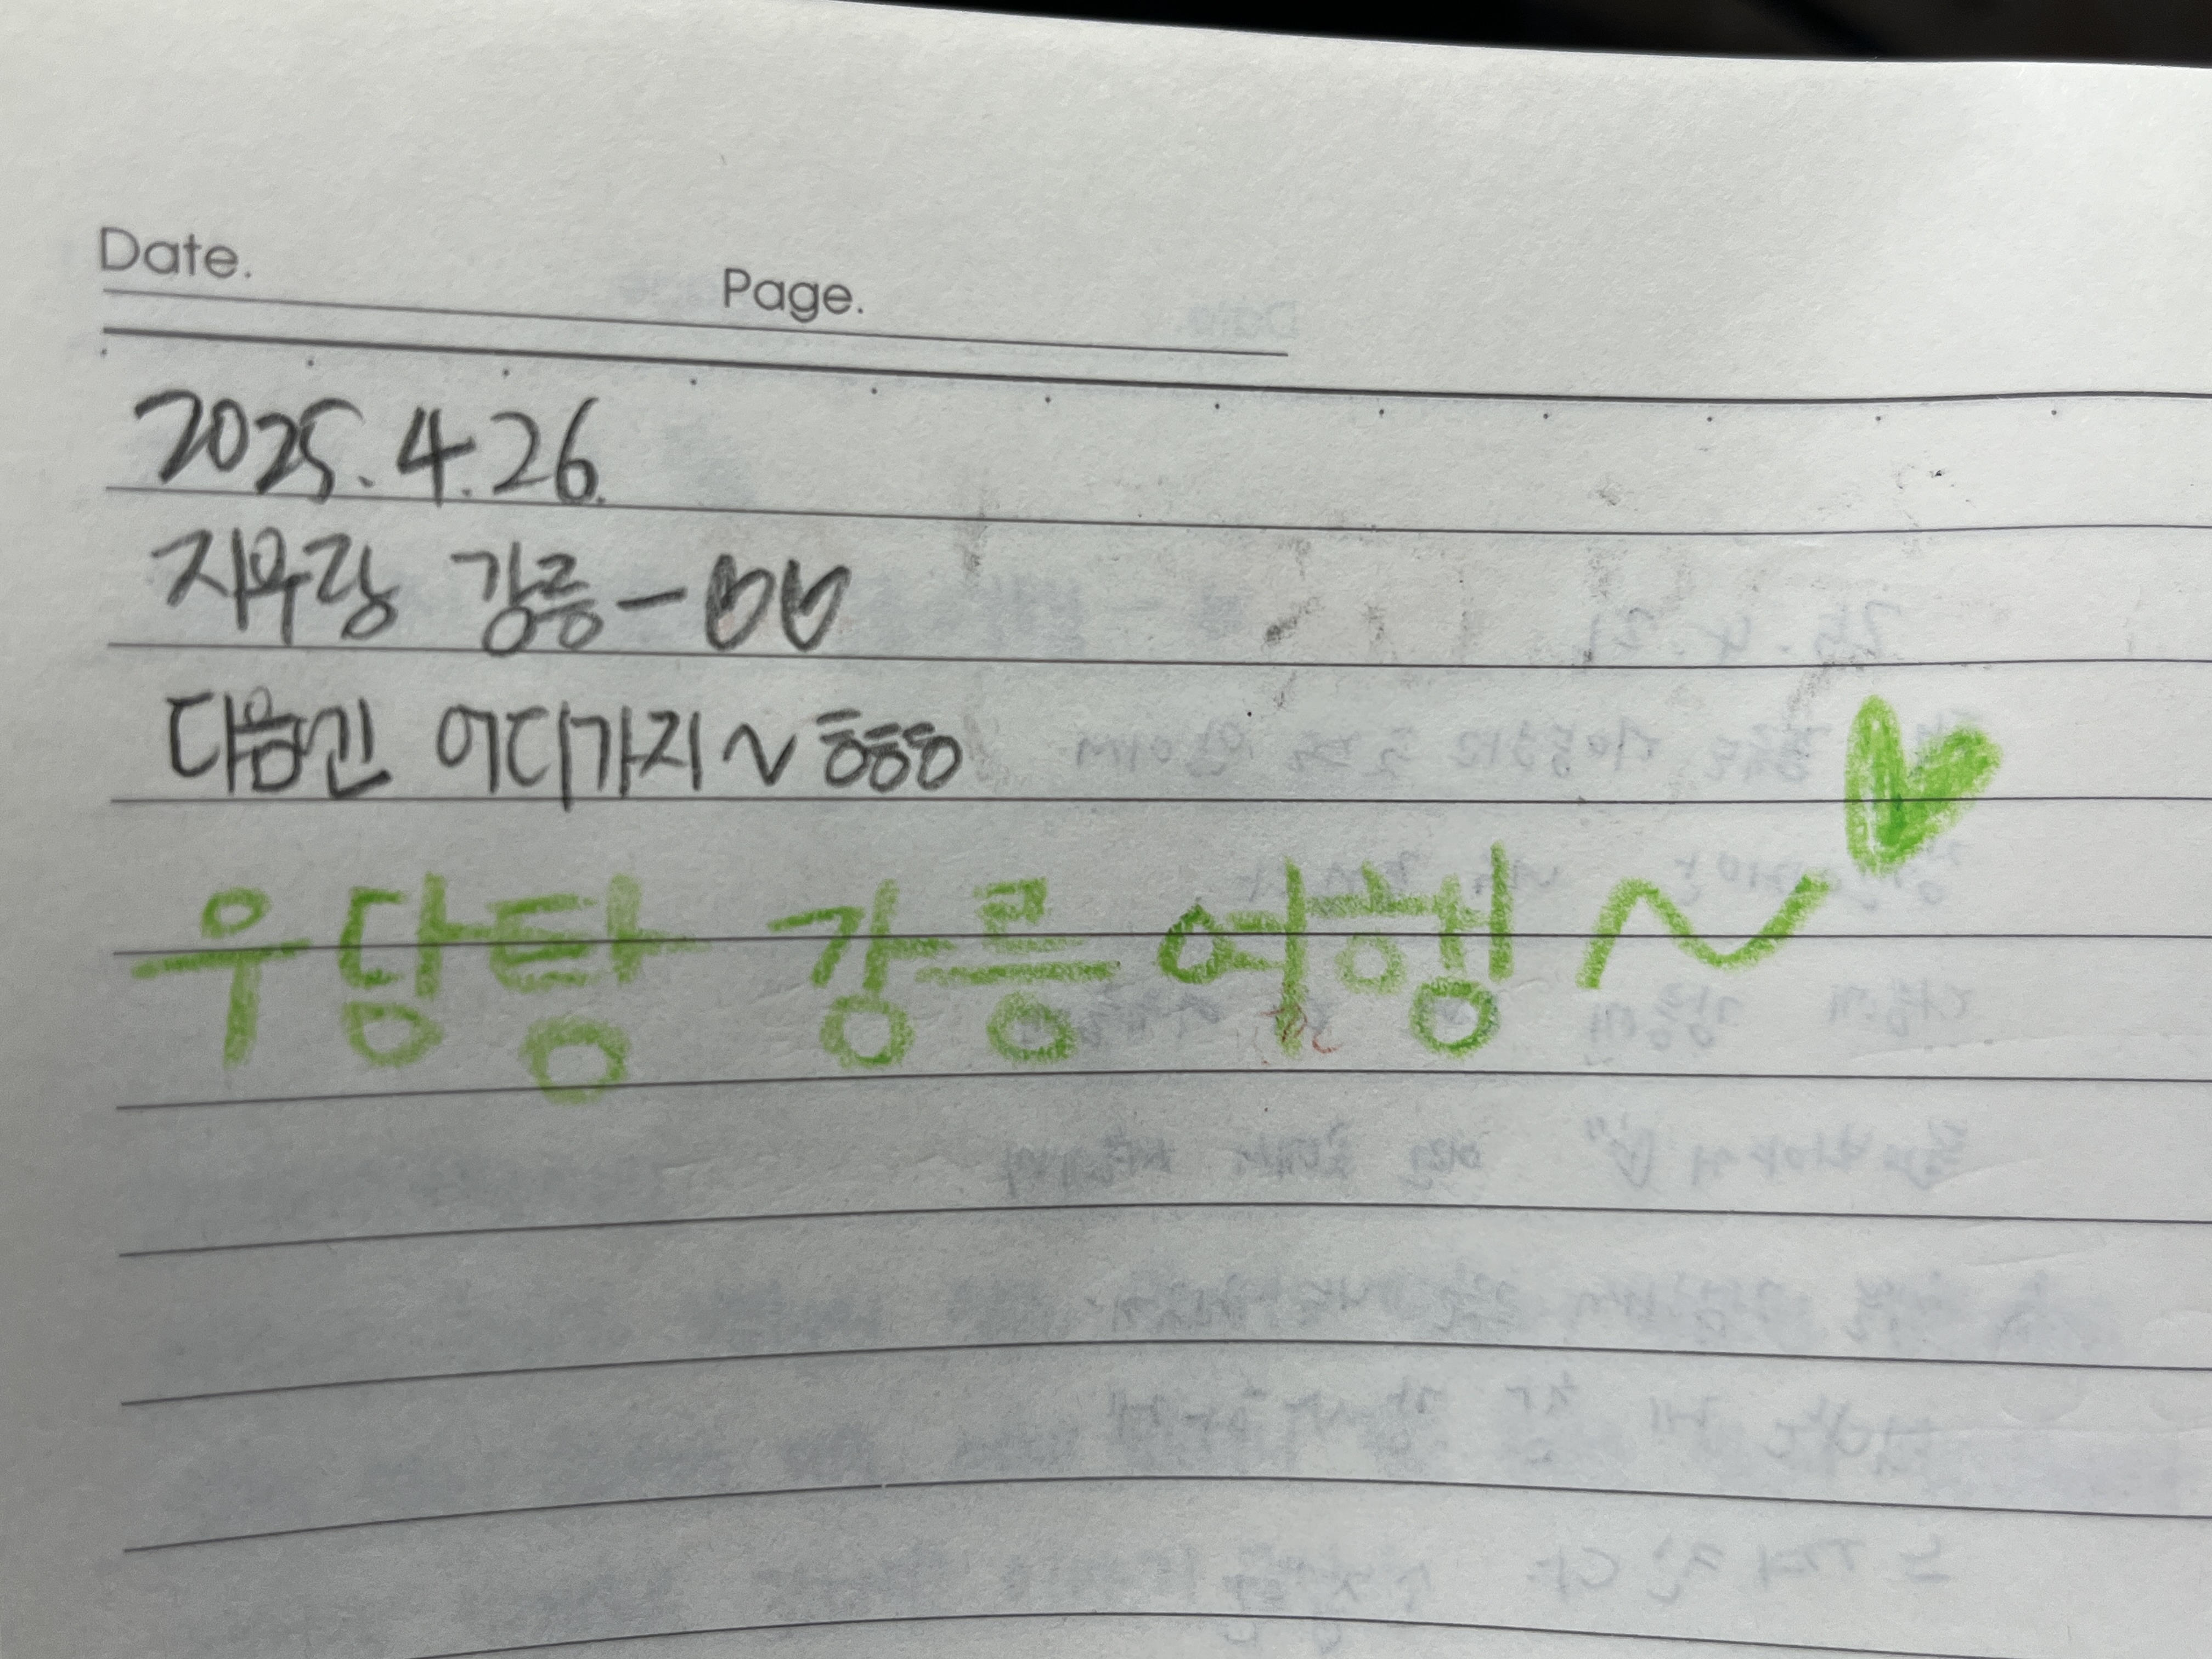 Date. Page.
2025.4.26.
지우랑 강릉-♡♡
다음긴 어디가지~흥흥흥
우당탕 강릉여행~♥